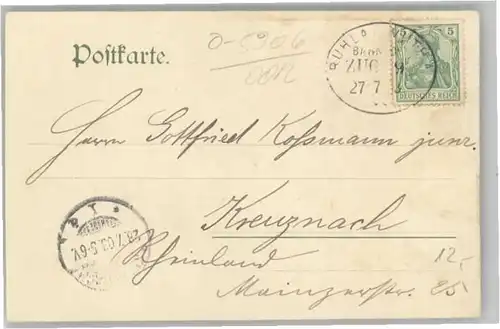 Postkarte.
0-5906
RUHLA
BAHN
ZUG
27 7
5
DEUTSCHES REICH
Herrn Gottfried Koßmann junr.
Kreuznach
Rheinland
Mainzerstr. 25
12,-
28.7.03.5-6V.